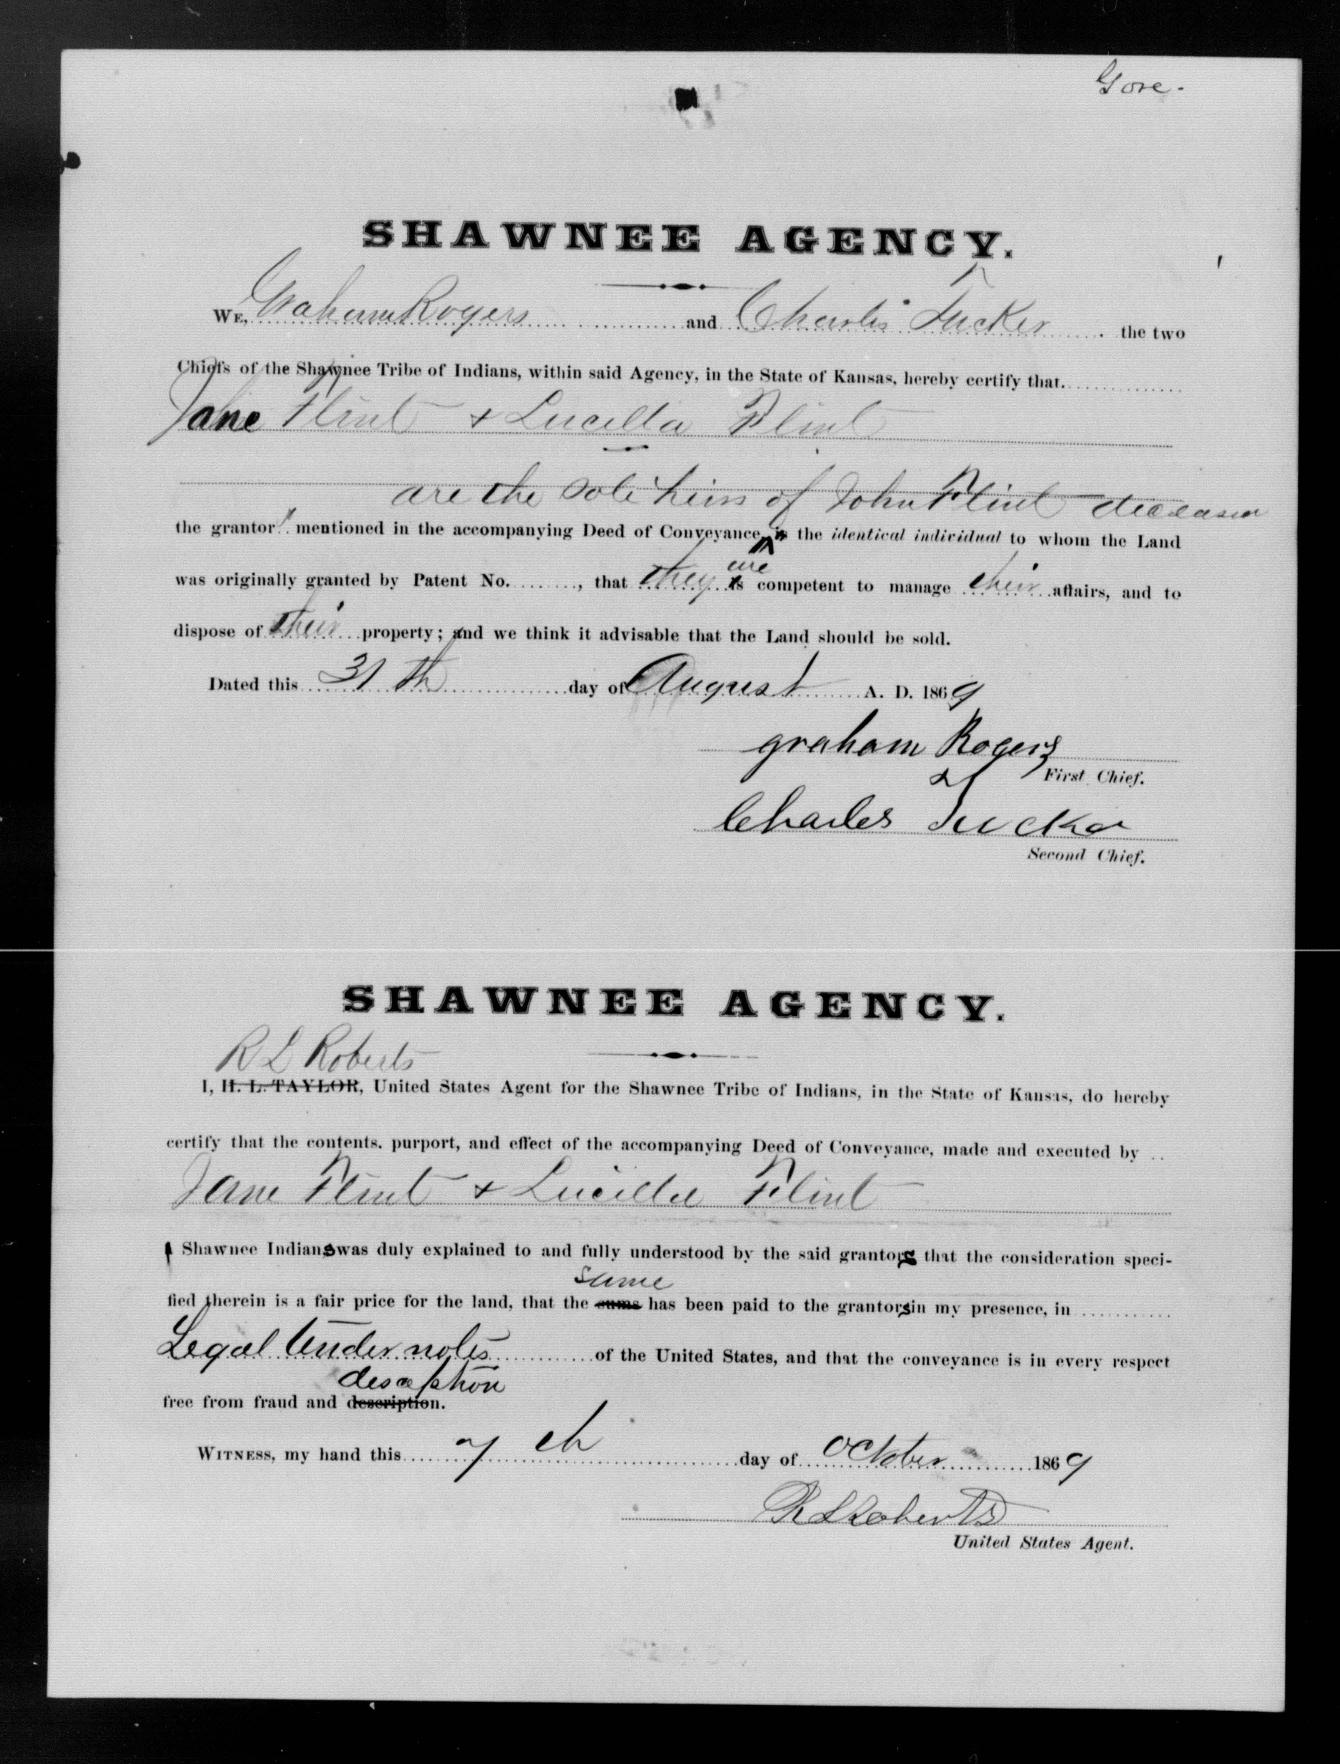 Gore.
SHAWNEE AGENCY.
WE, Graham Rogers and Charles Tucker the two
Chiefs of the Shawnee Tribe of Indians, within said Agency, in the State of Kansas, hereby certify that
Jane Flint & Lucilla Flint
are the sole heirs of John Flint deceased
the grantors mentioned in the accompanying Deed of Conveyance, is the identical individual to whom the Land
are
was originally granted by Patent No. , that they is competent to manage their affairs, and to
dispose of their property; and we think it advisable that the Land should be sold.
Dated this 31th day of August A. D. 1869
graham Rogers
First Chief.
Charles Tucker
Second Chief.
SHAWNEE AGENCY.
R L Roberts
I, H. L. TAYLOR, United States Agent for the Shawnee Tribe of Indians, in the State of Kansas, do hereby
certify that the contents. purport, and effect of the accompanying Deed of Conveyance, made and executed by
Jane Flint & Lucilla Flint
Shawnee Indians was duly explained to and fully understood by the said grantors that the consideration speci-
same
fied therein is a fair price for the land, that the sums has been paid to the grantors in my presence, in
Legal tender notes of the United States, and that the conveyance is in every respect
deseption
free from fraud and description.
WITNESS, my hand this 7th day of October 1869
R L Roberts
United States Agent.